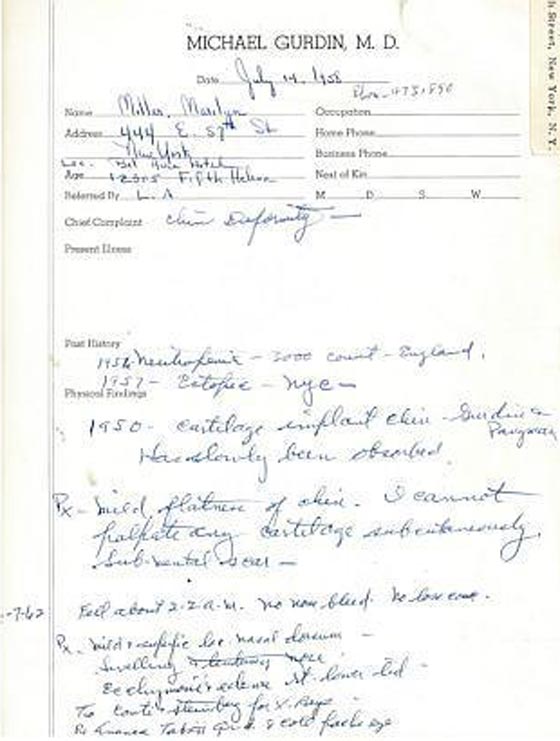 h Street, New York, N. Y.
MICHAEL GURDIN, M. D.
Date July 14, 1958
Name Miller, Marilyn
Occupation
Address 444 E. 57th St
Home Phone
New York
Business Phone
Loc. Bel Hotel
Age 12305 Fifth Helena
Next of Kin
Referred By L. A
M D S W
Chief Complaint Chin Deformity —
Present Illness
Past History
1956 Neutropenia - 3000 count - England.
1957 - Ectopic - NYC -
Physical Findings
1950 - cartilage implant chin - Gurdin &
Pangman
Has slowly been absorbed.
Px - mild flatness of chin. I cannot
palpate any cartilage subcutaneously.
Sub-mental scar -
-7-62 Fell about 2-2 a.m. No nose bleed. No loss consc.
Px. mild nasal dorsum -
Swelling tenderness nose
Ecchymosis & edema lower lid -
To Conti for X-Rays
cold packs eye